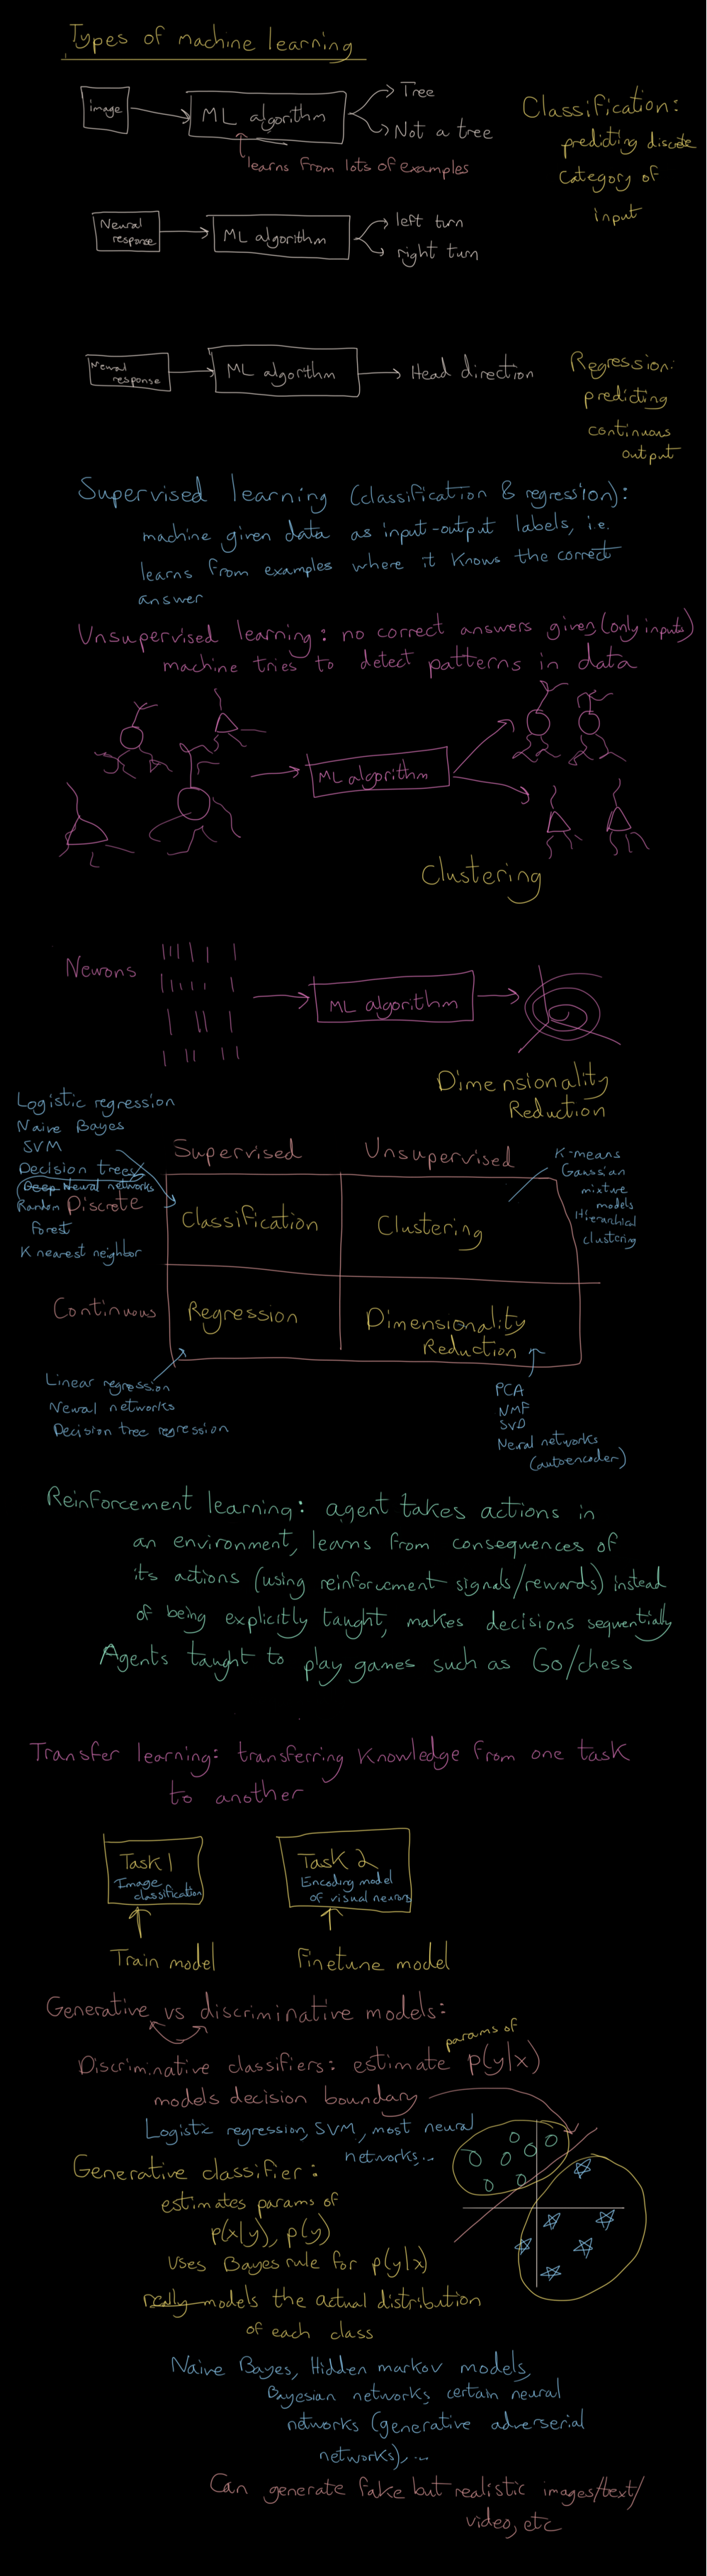 Types of machine learning
image
ML algorithm
Tree
Not a tree
learns from lots of examples
Classification:
predicting discrete
category of
input
Neural
response
ML algorithm
left turn
right turn
Neural
response
ML algorithm
Head direction
Regression:
predicting
continuous
output
Supervised learning (classification & regression):
machine given data as input-output labels, i.e.
learns from examples where it knows the correct
answer
Unsupervised learning: no correct answers given (only inputs)
machine tries to detect patterns in data
ML algorithm
Clustering
Neurons
ML algorithm
Dimensionality
Reduction
Logistic regression
Naive Bayes
SVM
Decision trees
Deep Neural networks
Random
Forest
K nearest neighbor
Supervised
Unsupervised
K-means
Gaussian
mixture
models
Hierarchical
clustering
Discrete
Classification
Clustering
Continuous
Regression
Dimensionality
Reduction
Linear regression
Neural networks
Decision tree regression
PCA
NMF
SVD
Neural networks
(autoencoder)
Reinforcement learning: agent takes actions in
an environment, learns from consequences of
its actions (using reinforcement signals/rewards) instead
of being explicitly taught, makes decisions sequentially
Agents taught to play games such as Go/chess
Transfer learning: transferring knowledge from one task
to another
Task 1
Image
classification
Task 2
Encoding model
of visual neurons
Train model
Finetune model
Generative vs discriminative models:
params of
Discriminative classifiers: estimate p(y|x)
models decision boundary
Logistic regression, SVM, most neural
networks...
Generative classifier:
estimates params of
p(x|y), p(y)
Uses Bayes rule for p(y|x)
really models the actual distribution
of each class
Naive Bayes, Hidden markov models,
Bayesian networks, certain neural
networks (generative adverserial
networks), ...
Can generate fake but realistic images/text/
video, etc